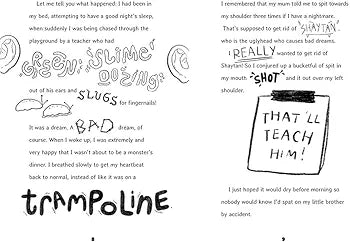 Let me tell you what happened: I had been in
my bed, attempting to have a good night's sleep,
when suddenly I was being chased through the
playground by a teacher who had
GREEN SLIME
OOZING
out of his ears and SLUGS for fingernails!
It was a dream. A BAD dream, of
course. When I woke up, I was extremely and
very happy that I wasn't about to be a monster's
dinner. I breathed slowly to get my heartbeat
back to normal, instead of like it was on a
TRAMPOLINE.
I remembered that my mum told me to spit towards
my shoulder three times if I have a nightmare.
That's supposed to get rid of SHAYTAN,
who is the uglyhead who causes bad dreams.
I REALLY wanted to get rid of
Shaytan! So I conjured up a bucketful of spit in
my mouth SHOT and it out over my left
shoulder.
THAT'LL
TEACH
HIM!
I just hoped it would dry before morning so
nobody would know I'd spat on my little brother
by accident.